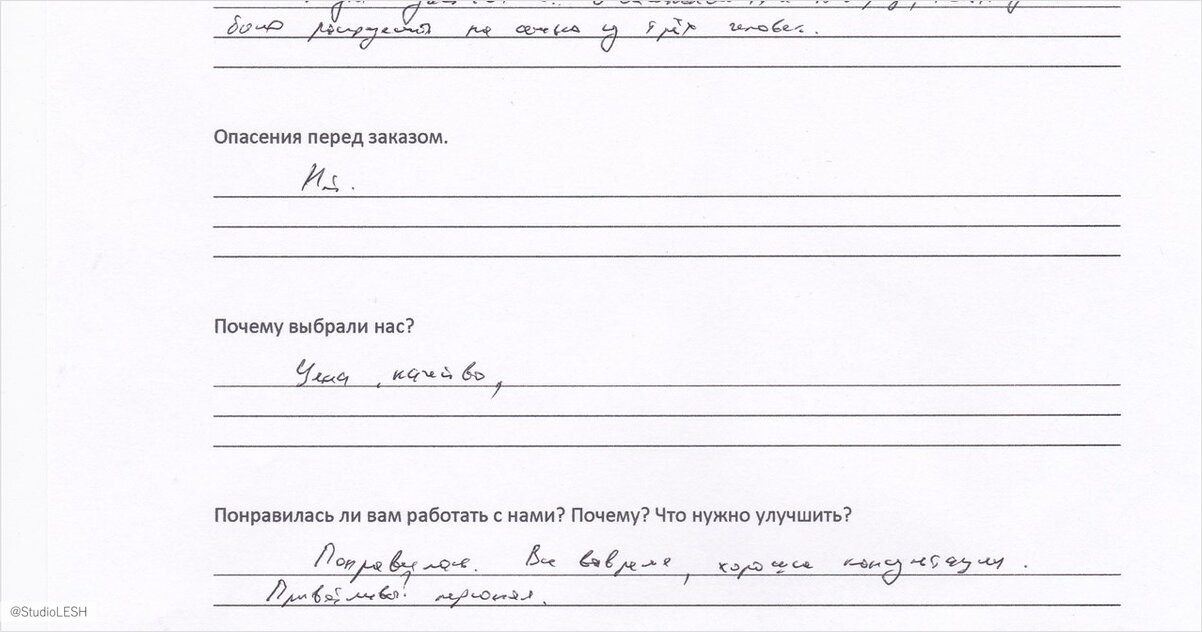 на семью из трёх человек.
Опасения перед заказом.
Нет.
Почему выбрали нас?
Цена, качество,
Понравилась ли вам работать с нами? Почему? Что нужно улучшить?
Понравилась. Все вовремя, хорошие консультации.
Приветливый персонал.
@StudioLESH